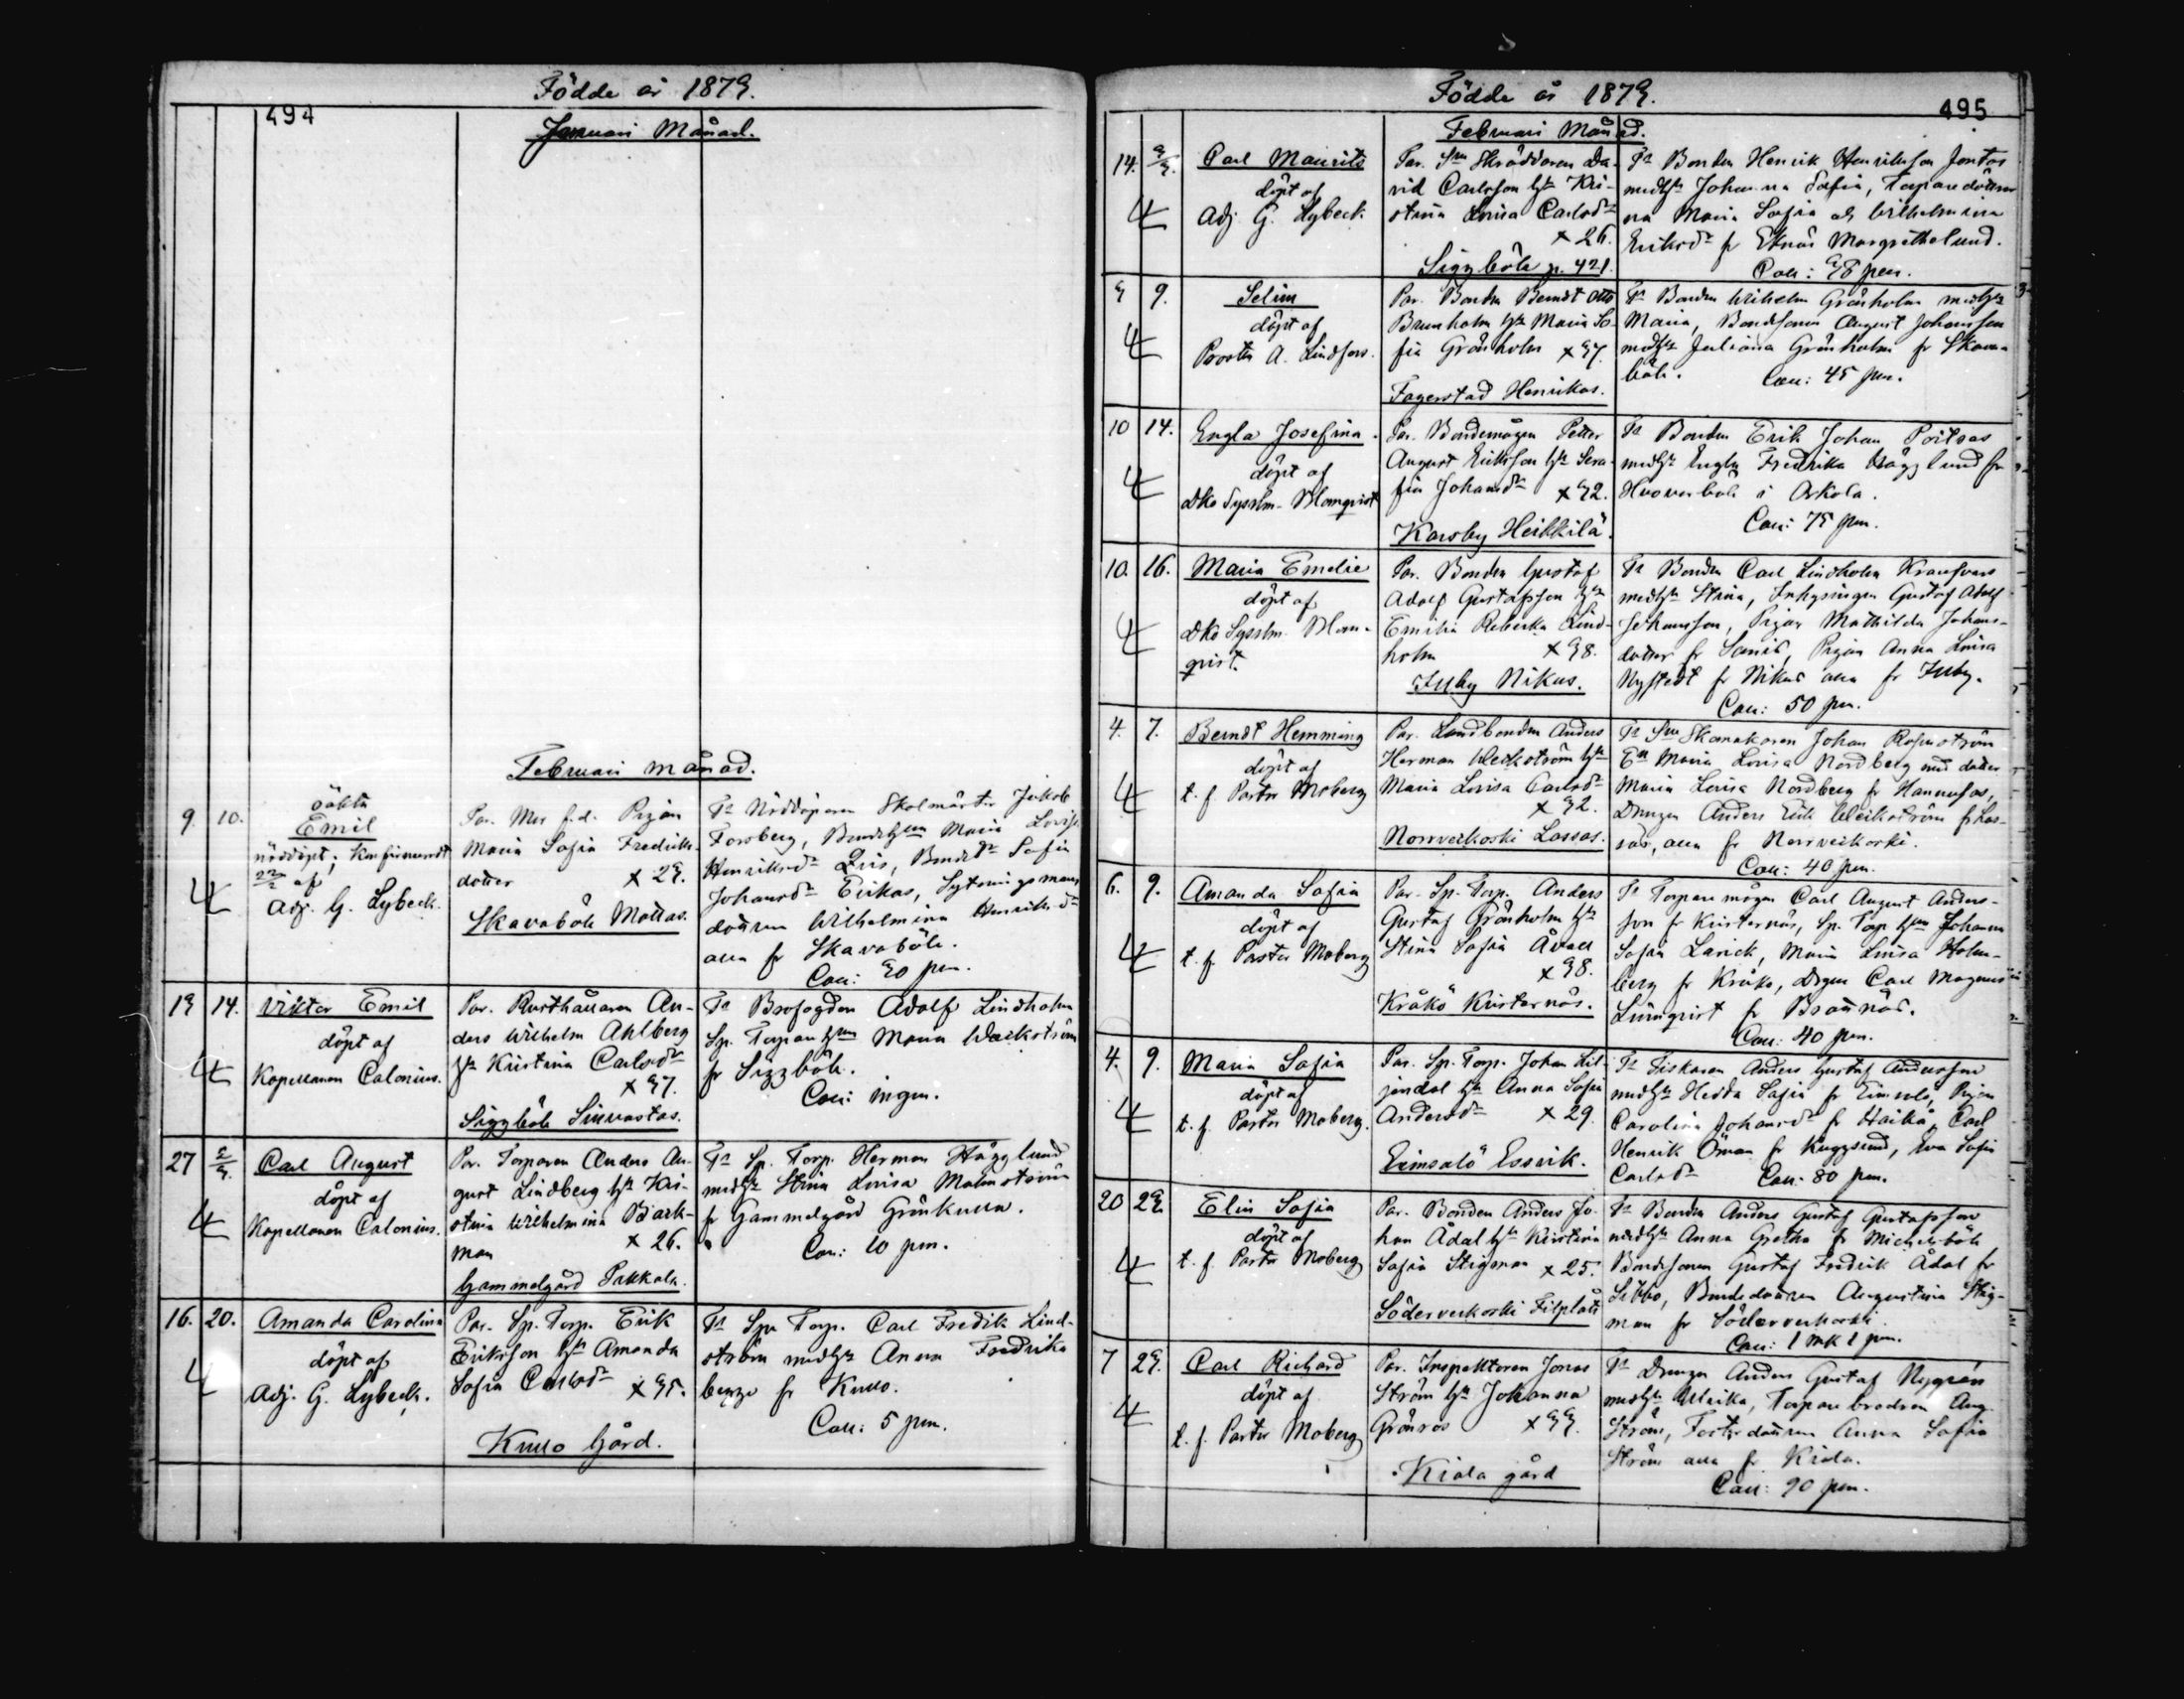 Födde år 1879.
494
Januari Månad.
Februari månad.
9. 10.
oäkta
Emil
nöddöpt; konfirmeradt
22/2 af
Adj. G. Lybeck.
Par. Mor f.d. Pigan
Maria Sofia Fredriks-
dotter × 29.
Skavaböle Mattas.
Ts Nöddöparen Skolmäster Jakob
Forsberg, Maria Lovisa
Henriksdr Sofia
Johansdr Erikas, Sytningsmans
dottren Wilhelmina Henriksdr
alla fr Skavaböle.
Coll: 90 pen.
13 14.
Viktor Emil
döpt af
Kapellanen Calonius.
Par. Rusthållaren An-
ders Wilhelm Ahlberg
hu Kristina Carlsdr
× 37.
Siggböle Simosas.
Ts Brofogden Adolf Lindholm
Sp. Torparehun Maria Weckström
fr Siggböle.
Coll: ingen.
27 2/3.
Carl August
döpt af
Kapellanen Calonius.
Par. Torparen Anders Au-
gust Lindberg hu Kri-
stina Wilhelmina Bäck-
man × 26.
Gammelgård Pakkala.
Ts Sp. Torp. Herman Hägglund
medhu Stina Lovisa Malmström
fr Gammelgård Grönkulla.
Coll: 10 pen.
16. 20.
Amanda Carolina
döpt af
Adj. G. Lybeck.
Par. Sp. Torp. Erik
Eriksson hu Amanda
Sofia Carlsdr × 35.
Kullo Gård.
Ts Sp. Torp. Carl Fredik Lind-
ström medhu Anna Fredrika
fr Kullo.
Coll: 5 pen.
Födde år 1879.
495
Februari Månad.
14. 2/3.
Carl Maurits
döpt af
Adj. G. Lybeck.
Par. Sn Skräddaren Da-
vid Carlsson hu Kri-
stina Lovisa Carlsdr
× 26.
Siggböle p. 421.
Ts Bonden Henrik Henriksson Jontas
medhu Johanna Sofia, Torparedöttrar
na Maria Sofia och Wilhelmina
Eriksdr fr Eknäs Margrethelund.
Coll: 38 pen.
3 9.
Selim
döpt af
Prosten A. Lindfors.
Par. Bonden Berndt Otto
Brunholm hu Maria So-
fia Grönholm × 37.
Fagerstad Henrikas.
Ts Bonden Wilhelm Grönholm medhu
Maria, Bondsonen August Johansson
medhu Juliana Grönholm fr Skava-
böle. Coll: 45 pen.
10 14.
Engla Josefina.
döpt af
dko Sysslm. Blomqvist
Par. Bondemågen Petter
August Eriksson hu Sera-
fia Johansdr × 32.
Karsby Heikkilä.
Ts Bonden Erik Johan Poitsas
medhu Engla Fredrika Hägglund fr
Huvuböle i Askola.
Coll: 75 pen.
10. 16.
Maria Emelie
döpt af
dko Sysslm. Blom-
qvist.
Par. Bonden Gustaf
Adolf Gustafsson hu
Emilia Rebecka Lind-
holm × 38.
Illby Nikus.
Ts Bonden Carl Lindholm
medhu Stina, Inhysingen Gustaf Adolf
Johansson, Pigan Mathilda Johans-
dotter fr Sannäs, Pigan Anna Lovisa
Nystedt fr Nikus alla fr Illby.
Coll: 50 pen.
4. 7.
Berndt Hemming
döpt af
t. f. Pastor Moberg
Par. Landbonden Anders
Herman Weckström hu
Maria Lovisa Carlsdr
× 32.
Norrveckoski Lassas.
Ts Sn Skomakaren Johan Rosenström
En Maria Lovisa Nordberg med dotter
Maria Lovisa Nordberg fr Hannusas,
Drengen Anders Erik Weckström fr Las-
sas, alla fr Norrveckoski.
Coll: 40 pen.
6. 9.
Amanda Sofia
döpt af
t. f. Pastor Moberg
Par. Sp. Torp. Anders
Gustaf Grönholm hu
Stina Sofia Åvall
× 38.
Kråkö Kristernäs.
Ts Torparemågen Carl August Anders-
son fr Kristernäs, Sp. Torp hun Johanna
Sofia Larick, Maria Lovisa Holm-
berg fr Kråkö, Drgen Carl Magnus
Lurnqvist fr Brännäs.
Coll: 40 pen.
4. 9.
Maria Sofia
döpt af
t. f. Pastor Moberg.
Par. Sp. Torp. Johan Lil-
jendal hu Anna Sofia
Andersdr × 29
Eimsalö Essvik.
Ts Fiskaren Anders Gustaf Andersson
medhu Hedda Sofia fr Eimsalö, Pigan
Carolina Johansdr fr Haikå, Carl
Henrik Öman fr Kuggsund, Eva Sofia
Carlsdr Coll: 80 pen.
20 23.
Elin Sofia
döpt af
t. f. Pastor Moberg
Par. Bonden Anders Jo-
han Ådal hu Kristina
Sofia Stigman × 25.
Söderveckoski Filpas
Ts Bonden Anders Gustaf Gustafsson
medhu Anna Gretha fr Mickelsböle
Bondsonen Gustaf Fredrik Ådal fr
Sibbo, Bondedottren Augustina Stig-
man fr Söderveckoski.
Coll: 1 mk 1 pen.
7 23.
Carl Richard
döpt af
t. f. Pastor Moberg
Par. Inspektoren Jonas
Ström hu Johanna
Grönros × 33.
Kiala gård
Ts Drengen Anders Gustaf Nygrén
medhu Ulrika, Torparebrodren Aug.
Ström, Fosterdottren Anna Sofia
Ström alla fr Kiala.
Coll: 90 pen.